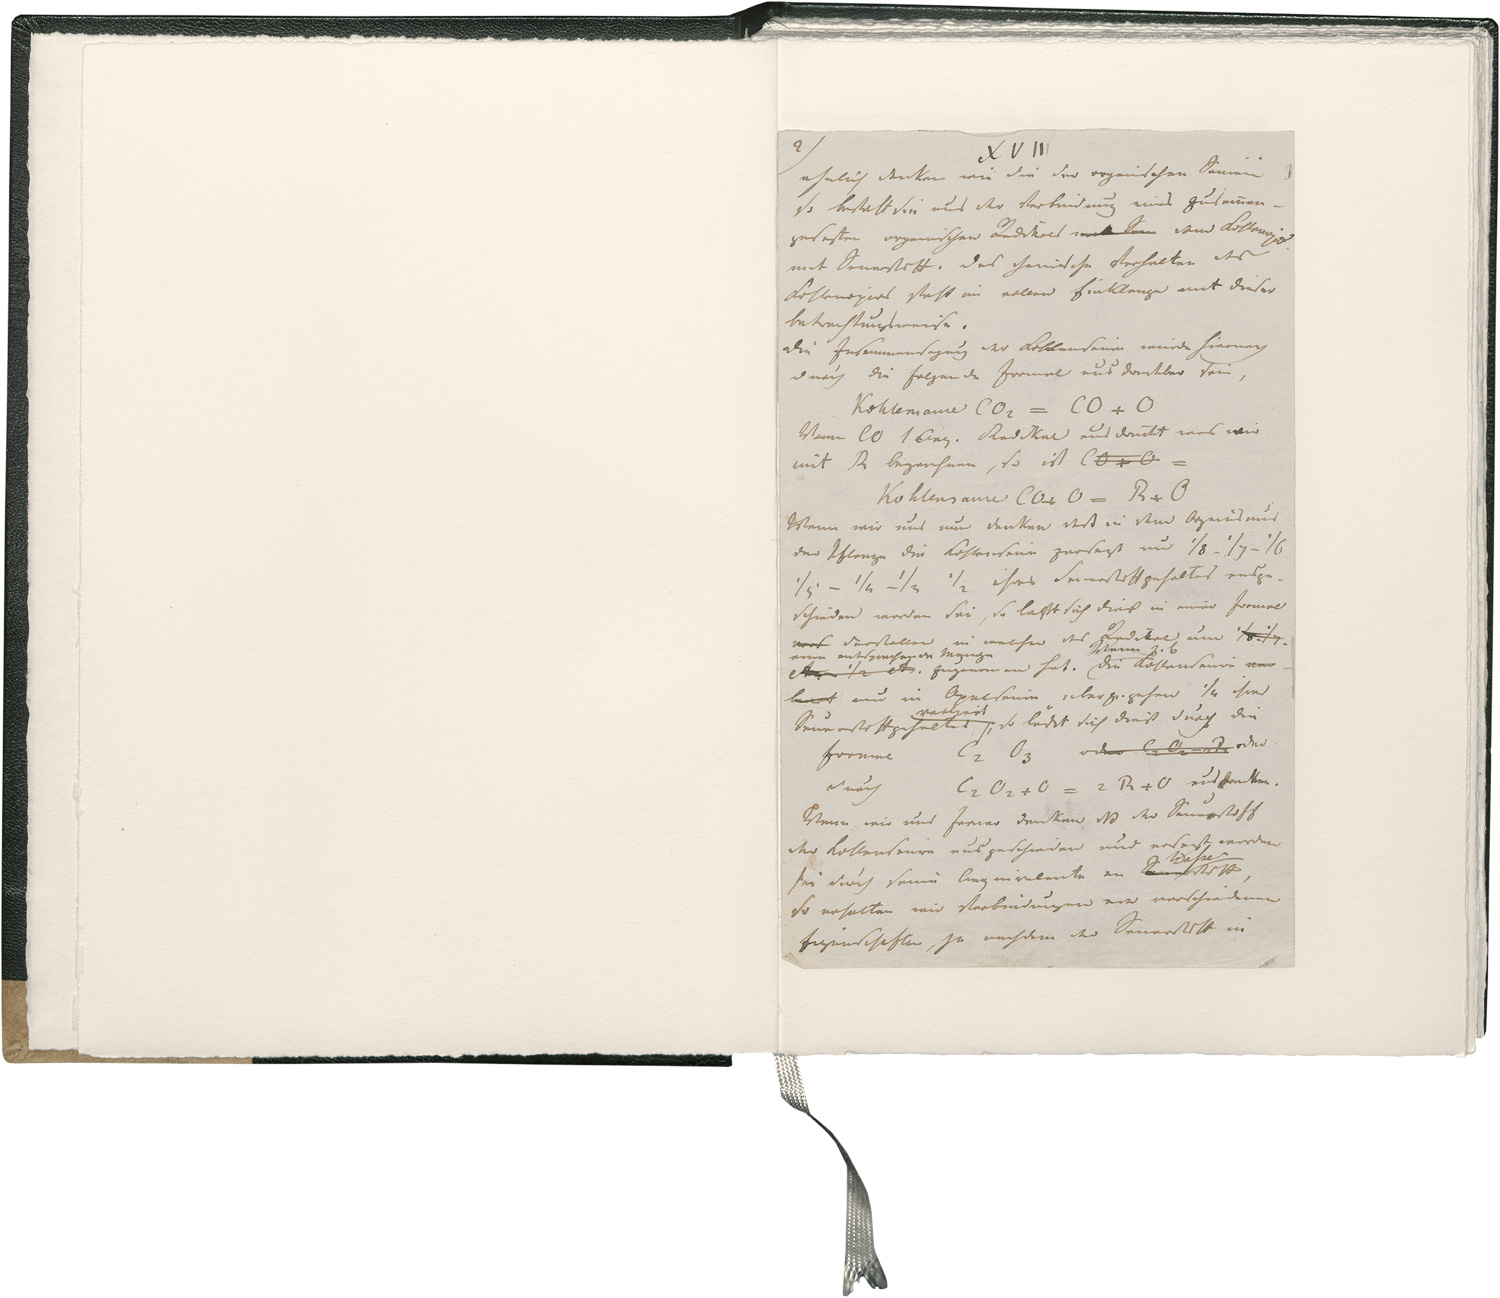 2) XVIII
ähnlich denken wie die der organischen Säuren
so besteht sie aus der Verbindung eines zusammen-
gesetzten organischen Radikals mit dem Kohlenoxid
mit Sauerstoff. Das chemische Verhalten des
Kohlenoxids steht im vollen Einklange mit dieser
betrachtungsweise.
Die Zusammensetzung der Kohlensäure würde hiernach
durch die folgende Formel ausdrückbar sein,
Kohlensaure CO2 = CO + O
Wenn CO 1 Aeq. Radikal ausdrückt was wir
mit R bezeichnen, so ist CO + O =
Kohlensaure CO + O = R + O
Wenn wir uns nun denken daß in dem Organismus
der Pflanze die Kohlensäure zersetzt und 1/8 - 1/7 - 1/6
1/5 - 1/4 - 1/3 1/2 ihres Sauerstoffgehaltes ausge-
schieden worden sei, so läßt sich dieß in einer Formel
darstellen in welcher das Radikal um
eine entsprechende Menge Wenn z. B.
zugenommen hat. Die Kohlensäure
um in Oxalsäure überzugehen 1/4 ihres
verliert
Sauerstoffgehaltes, so läßt sich dieß durch die
Formel C2 O3 oder C2O2 + R oder
durch C2 O2 + O = 2 R + O ausdrücken.
Wenn wir uns ferner denken daß der Sauerstoff
der Kohlensäure ausgeschieden und ersetzt worden
Wasser
sei durch seine Aequivalente an Sauerstoff,
so erhalten wir Verbindungen von verschiedenen
Eigenschaften, je nachdem der Sauerstoff in